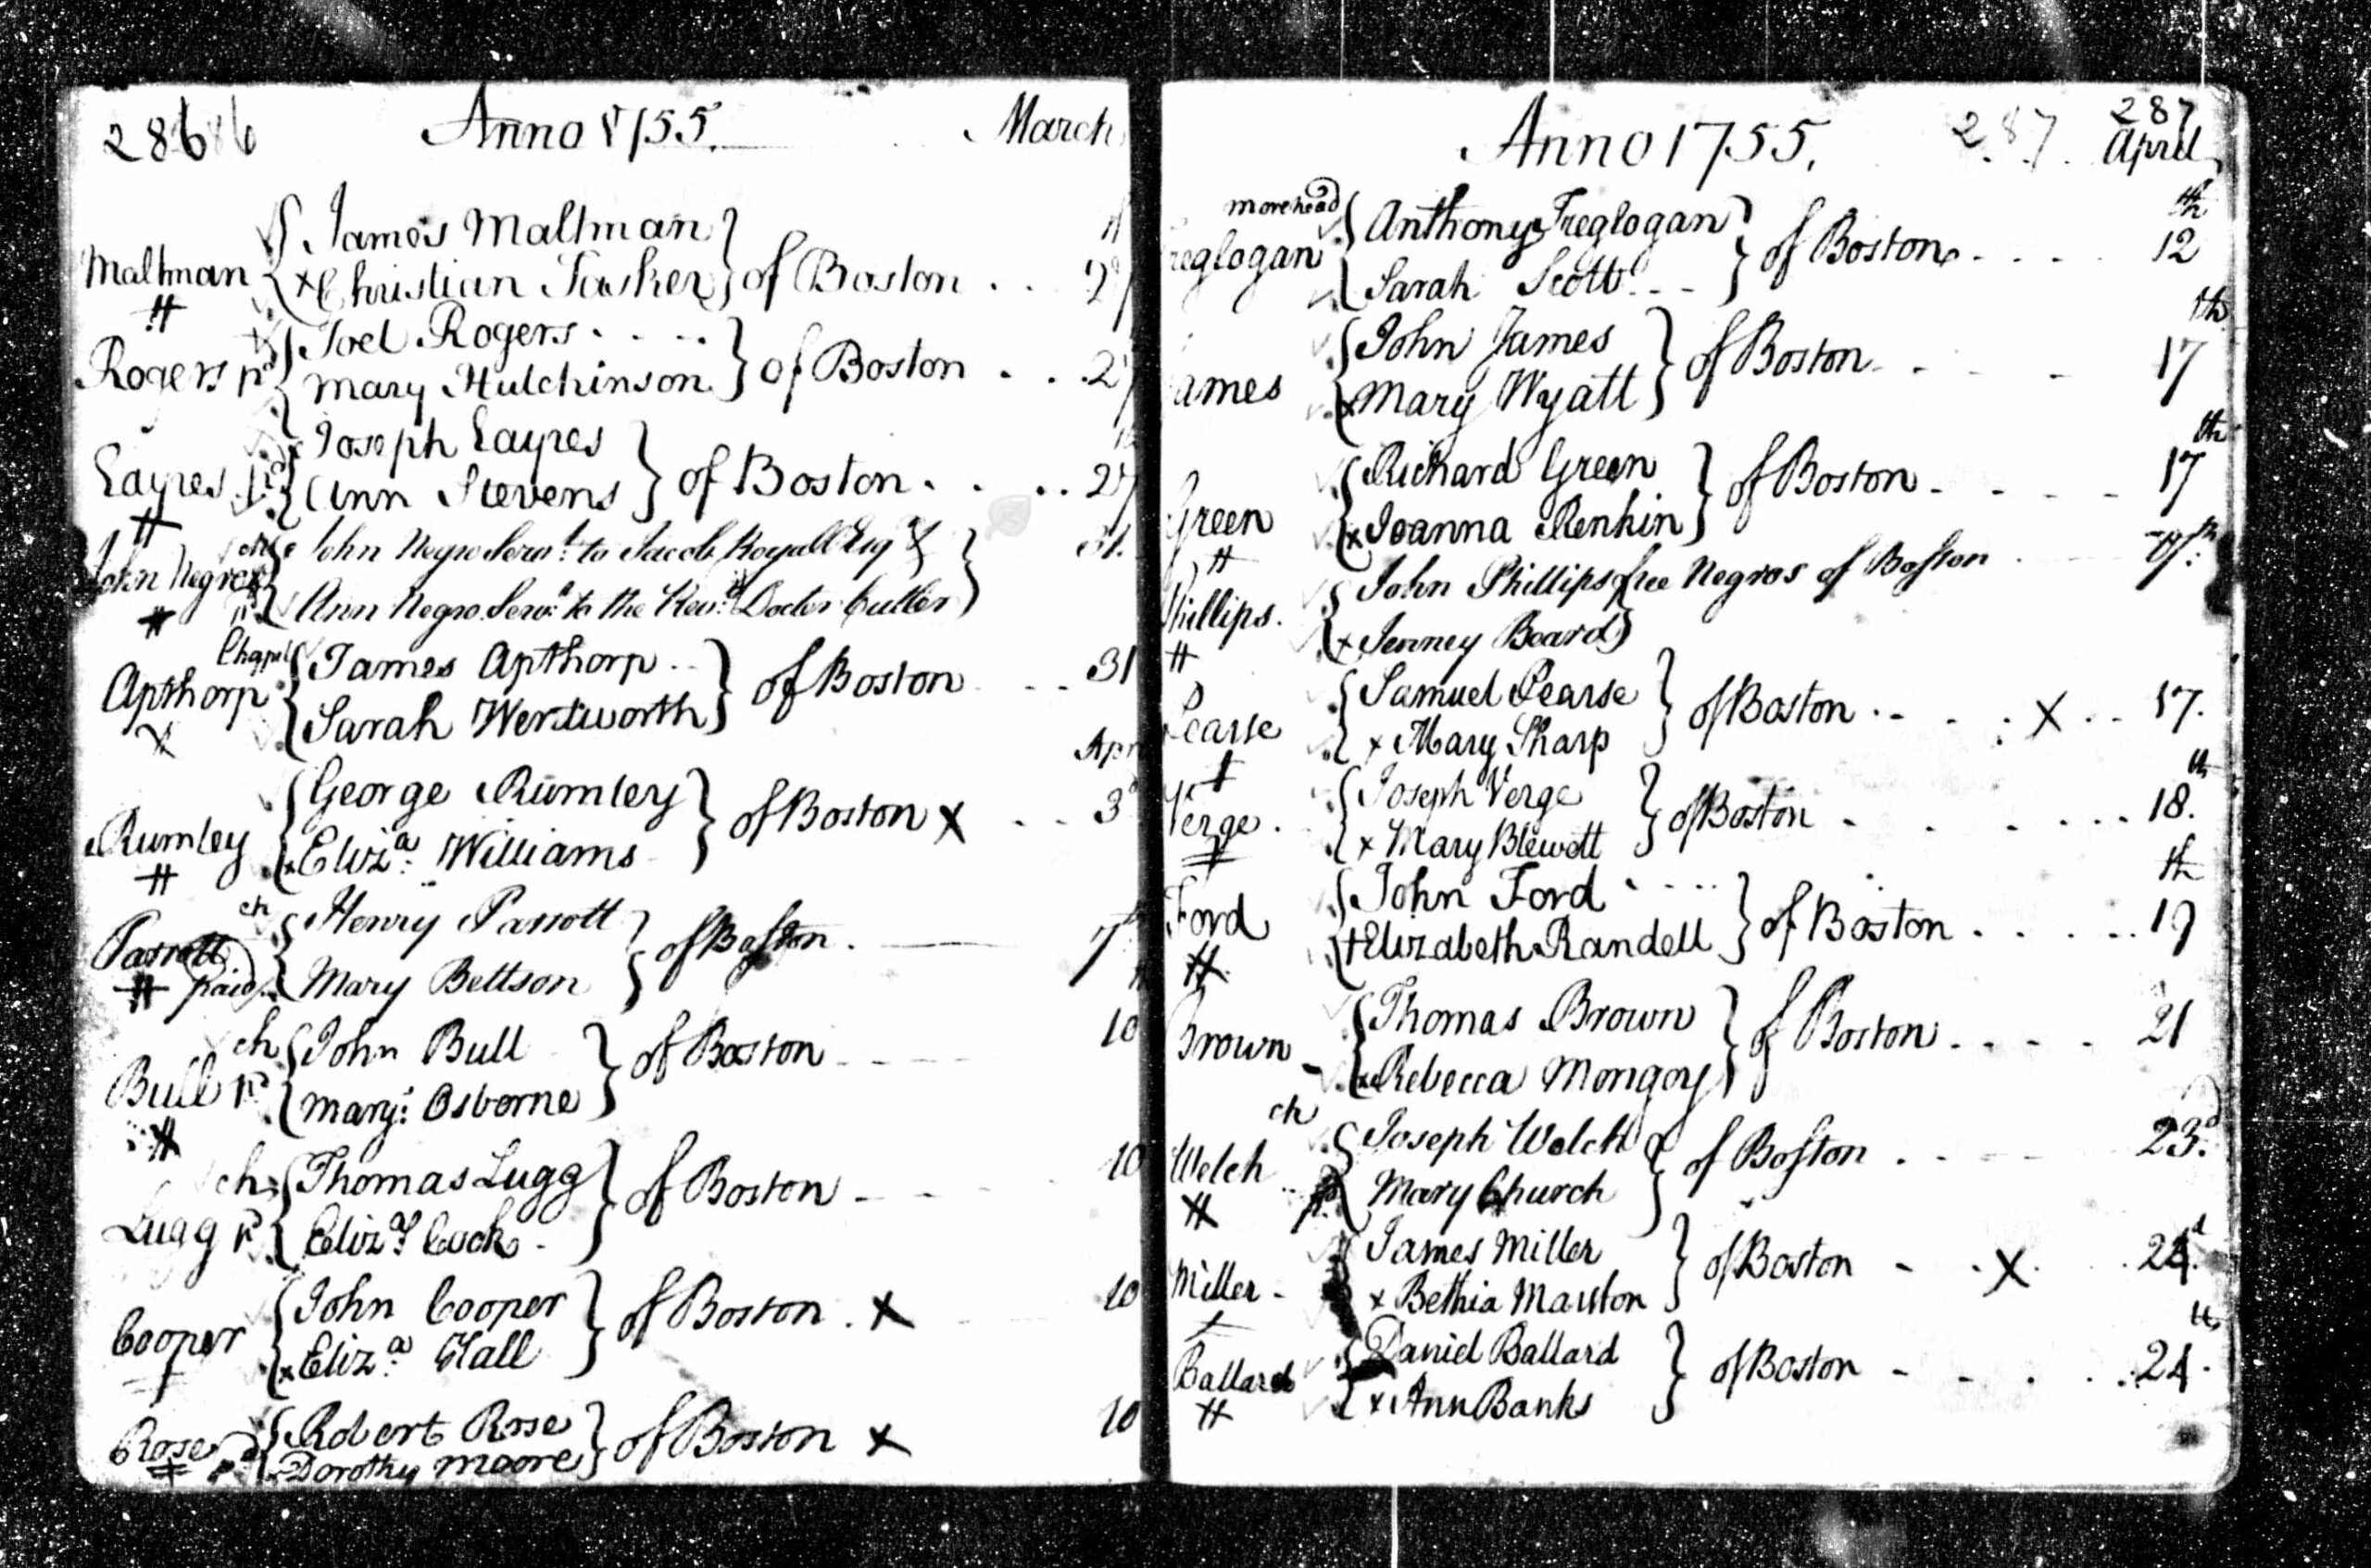 286 Anno 1755. March
James Maltman
Maltman of Boston . . . 27
x Christian Tasker
Joel Rogers . . . .
Rogers pd of Boston . . . 27
Mary Hutchinson
Joseph Eayres
Eayres of Boston . . . . 27
Ann Stevens
ch John Negro Servt. to Jacob Royall Esqr 31.
John Negro
Ann Negro Servt. to the Revd. Doctor Cutler
Chapel James Apthorp . .
Apthorp of Boston . . . 31
Sarah Wentworth
Apr
George Rumley
Rumley of Boston x . . . 3d
x Eliza. Williams
ch Henry Parrott
Parrott of Boston . 7th
paid Mary Bettson
ch John Bull 10
Bull pd of Boston
Mary: Osborne
ch Thomas Lugg 10
Lugg pd of Boston
Eliza. Cock
John Cooper 10
Cooper of Boston . x
x Eliza. Hall
Robert Rose 10
Rose pd of Boston x
Dorothy Moore
287
Anno 1755. 287 April
morehead Anthony Treglogan th
reglogan of Boston . . . . 12
Sarah Scott
John James th
ames of Boston 17
x Mary Wyatt
Richard Green th
Green of Boston 17
x Joanna Renkin
John Phillips free Negros of Boston
Phillips.
x Jenney Beard
Samuel Pearse
Pearse of Boston . . . x . . 17.
x Mary Sharp
Joseph Verge th
Verge . of Boston . . . . . 18.
x Mary Blewett
John Ford th
Ford of Boston . . . . . 19
+ Elizabeth Randell
Thomas Brown
Brown of Boston . . . . 21
x Rebecca Mongoy
ch Joseph Welch
Welch of Boston . 23d.
pd Mary Church
James Miller
Miller - of Boston - . x . . 24.
x Bethia Marston
Daniel Ballard th
Ballard of Boston - . . . . 24.
x Ann Banks